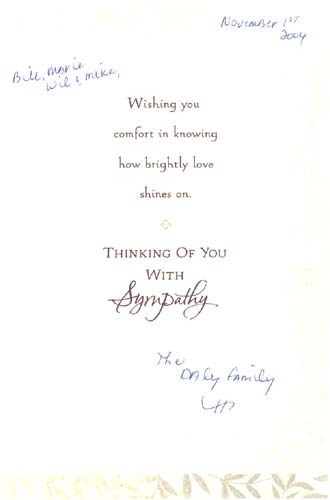 November 1st
2004
Bill, Marie
Wil & Mike,
Wishing you
comfort in knowing
how brightly love
shines on.
THINKING OF YOU
WITH
Sympathy
The
Daly Family